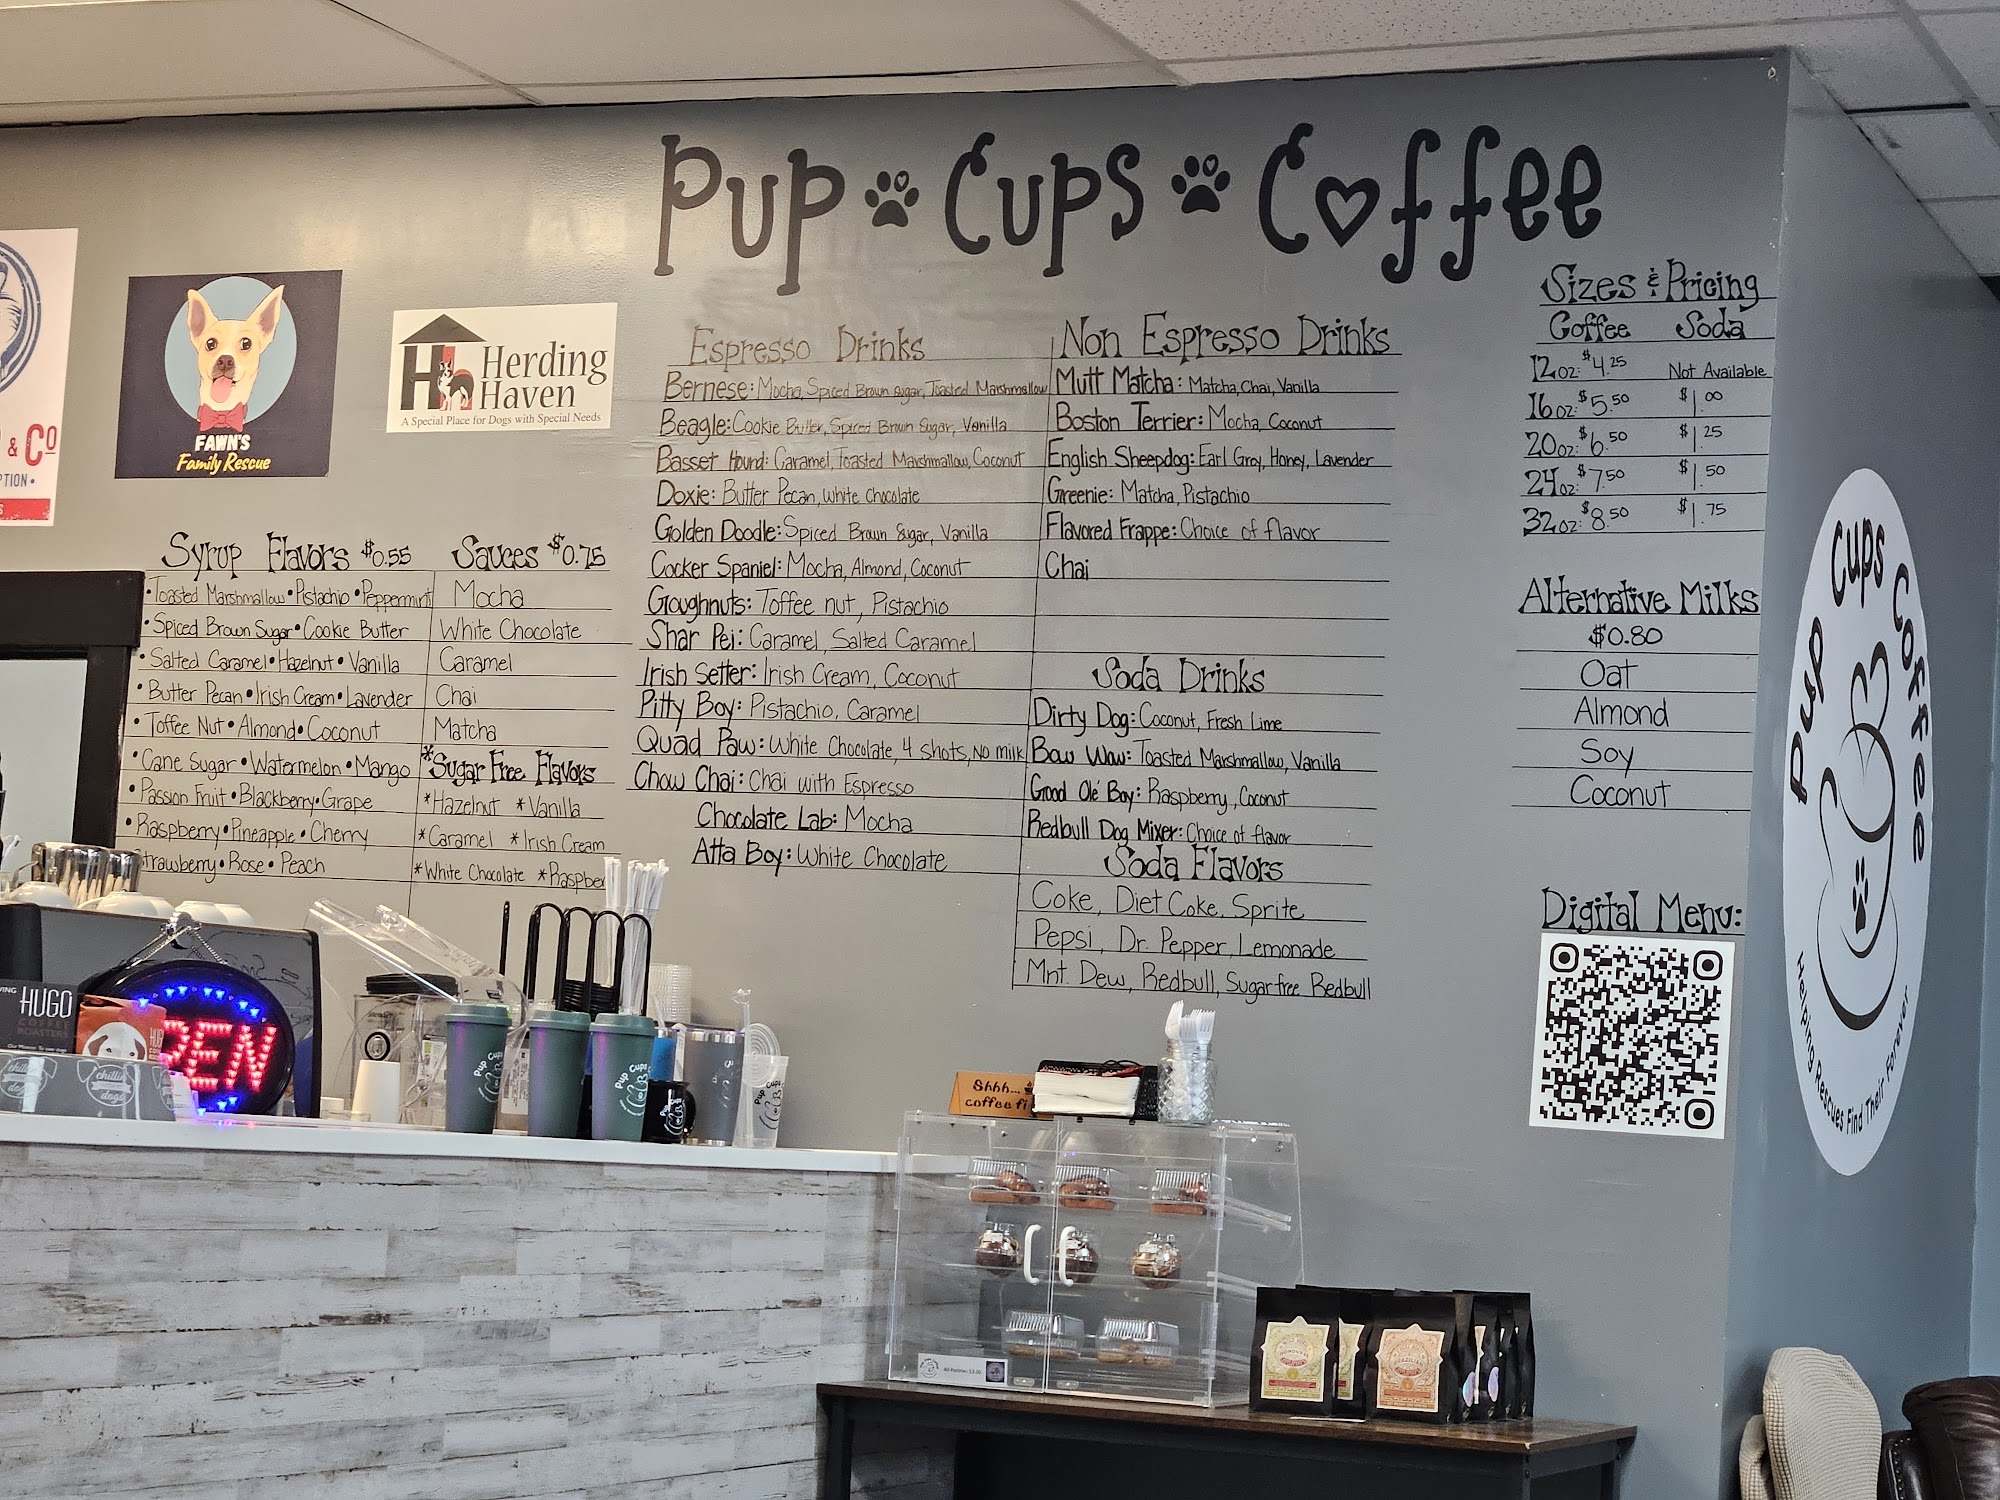 Pup Cups Coffee
& Co
PTION •
FAWN'S
Family Rescue
Herding
Haven
A Special Place for Dogs with Special Needs
Syrup Flavors $0.55
• Toasted Marshmallow • Pistachio • Peppermint
• Spiced Brown Sugar • Cookie Butter
• Salted Caramel • Hazelnut • Vanilla
• Butter Pecan • Irish Cream • Lavender
• Toffee Nut • Almond • Coconut
• Cane Sugar • Watermelon • Mango
• Passion Fruit • Blackberry • Grape
• Raspberry • Pineapple • Cherry
Strawberry • Rose • Peach
Sauces $0.75
Mocha
White Chocolate
Caramel
Chai
Matcha
*Sugar Free Flavors
*Hazelnut *Vanilla
*Caramel *Irish Cream
*White Chocolate *Raspber
Espresso Drinks
Bernese: Mocha, Spiced Brown Sugar, Toasted Marshmallow
Beagle: Cookie Butter, Spiced Brown Sugar, Vanilla
Basset Hound: Caramel, Toasted Marshmallow, Coconut
Doxie: Butter Pecan, White Chocolate
Golden Doodle: Spiced Brown Sugar, Vanilla
Cocker Spaniel: Mocha, Almond, Coconut
Goughnuts: Toffee nut, Pistachio
Shar Pei: Caramel, Salted Caramel
Irish Setter: Irish Cream, Coconut
Pitty Boy: Pistachio, Caramel
Quad Paw: White Chocolate, 4 shots, No milk
Chow Chai: Chai with Espresso
Chocolate Lab: Mocha
Atta Boy: White Chocolate
Non Espresso Drinks
Mutt Matcha: Matcha, Chai, Vanilla
Boston Terrier: Mocha, Coconut
English Sheepdog: Earl Grey, Honey, Lavender
Greenie: Matcha, Pistachio
Flavored Frappe: Choice of flavor
Chai
Soda Drinks
Dirty Dog: Coconut, Fresh Lime
Bow Wow: Toasted Marshmallow, Vanilla
Good Ole' Boy: Raspberry, Coconut
Redbull Dog Mixer: Choice of flavor
Soda Flavors
Coke, Diet Coke, Sprite
Pepsi, Dr. Pepper, Lemonade
Mnt. Dew, Redbull, Sugarfree Redbull
Sizes & Pricing
Coffee Soda
12oz: $4.25 Not Available
16oz: $5.50 $1.00
20oz: $6.50 $1.25
24oz: $7.50 $1.50
32oz: $8.50 $1.75
Alternative Milks
$0.80
Oat
Almond
Soy
Coconut
Digital Menu:
Pup Cups Coffee
Helping Rescues Find Their Forever
HUGO
COFFEE
ROASTERS
PEN
chillin
dogs
Pup Cups
Pup Cups
Shhh...
coffee fi
All Pastries $3.00